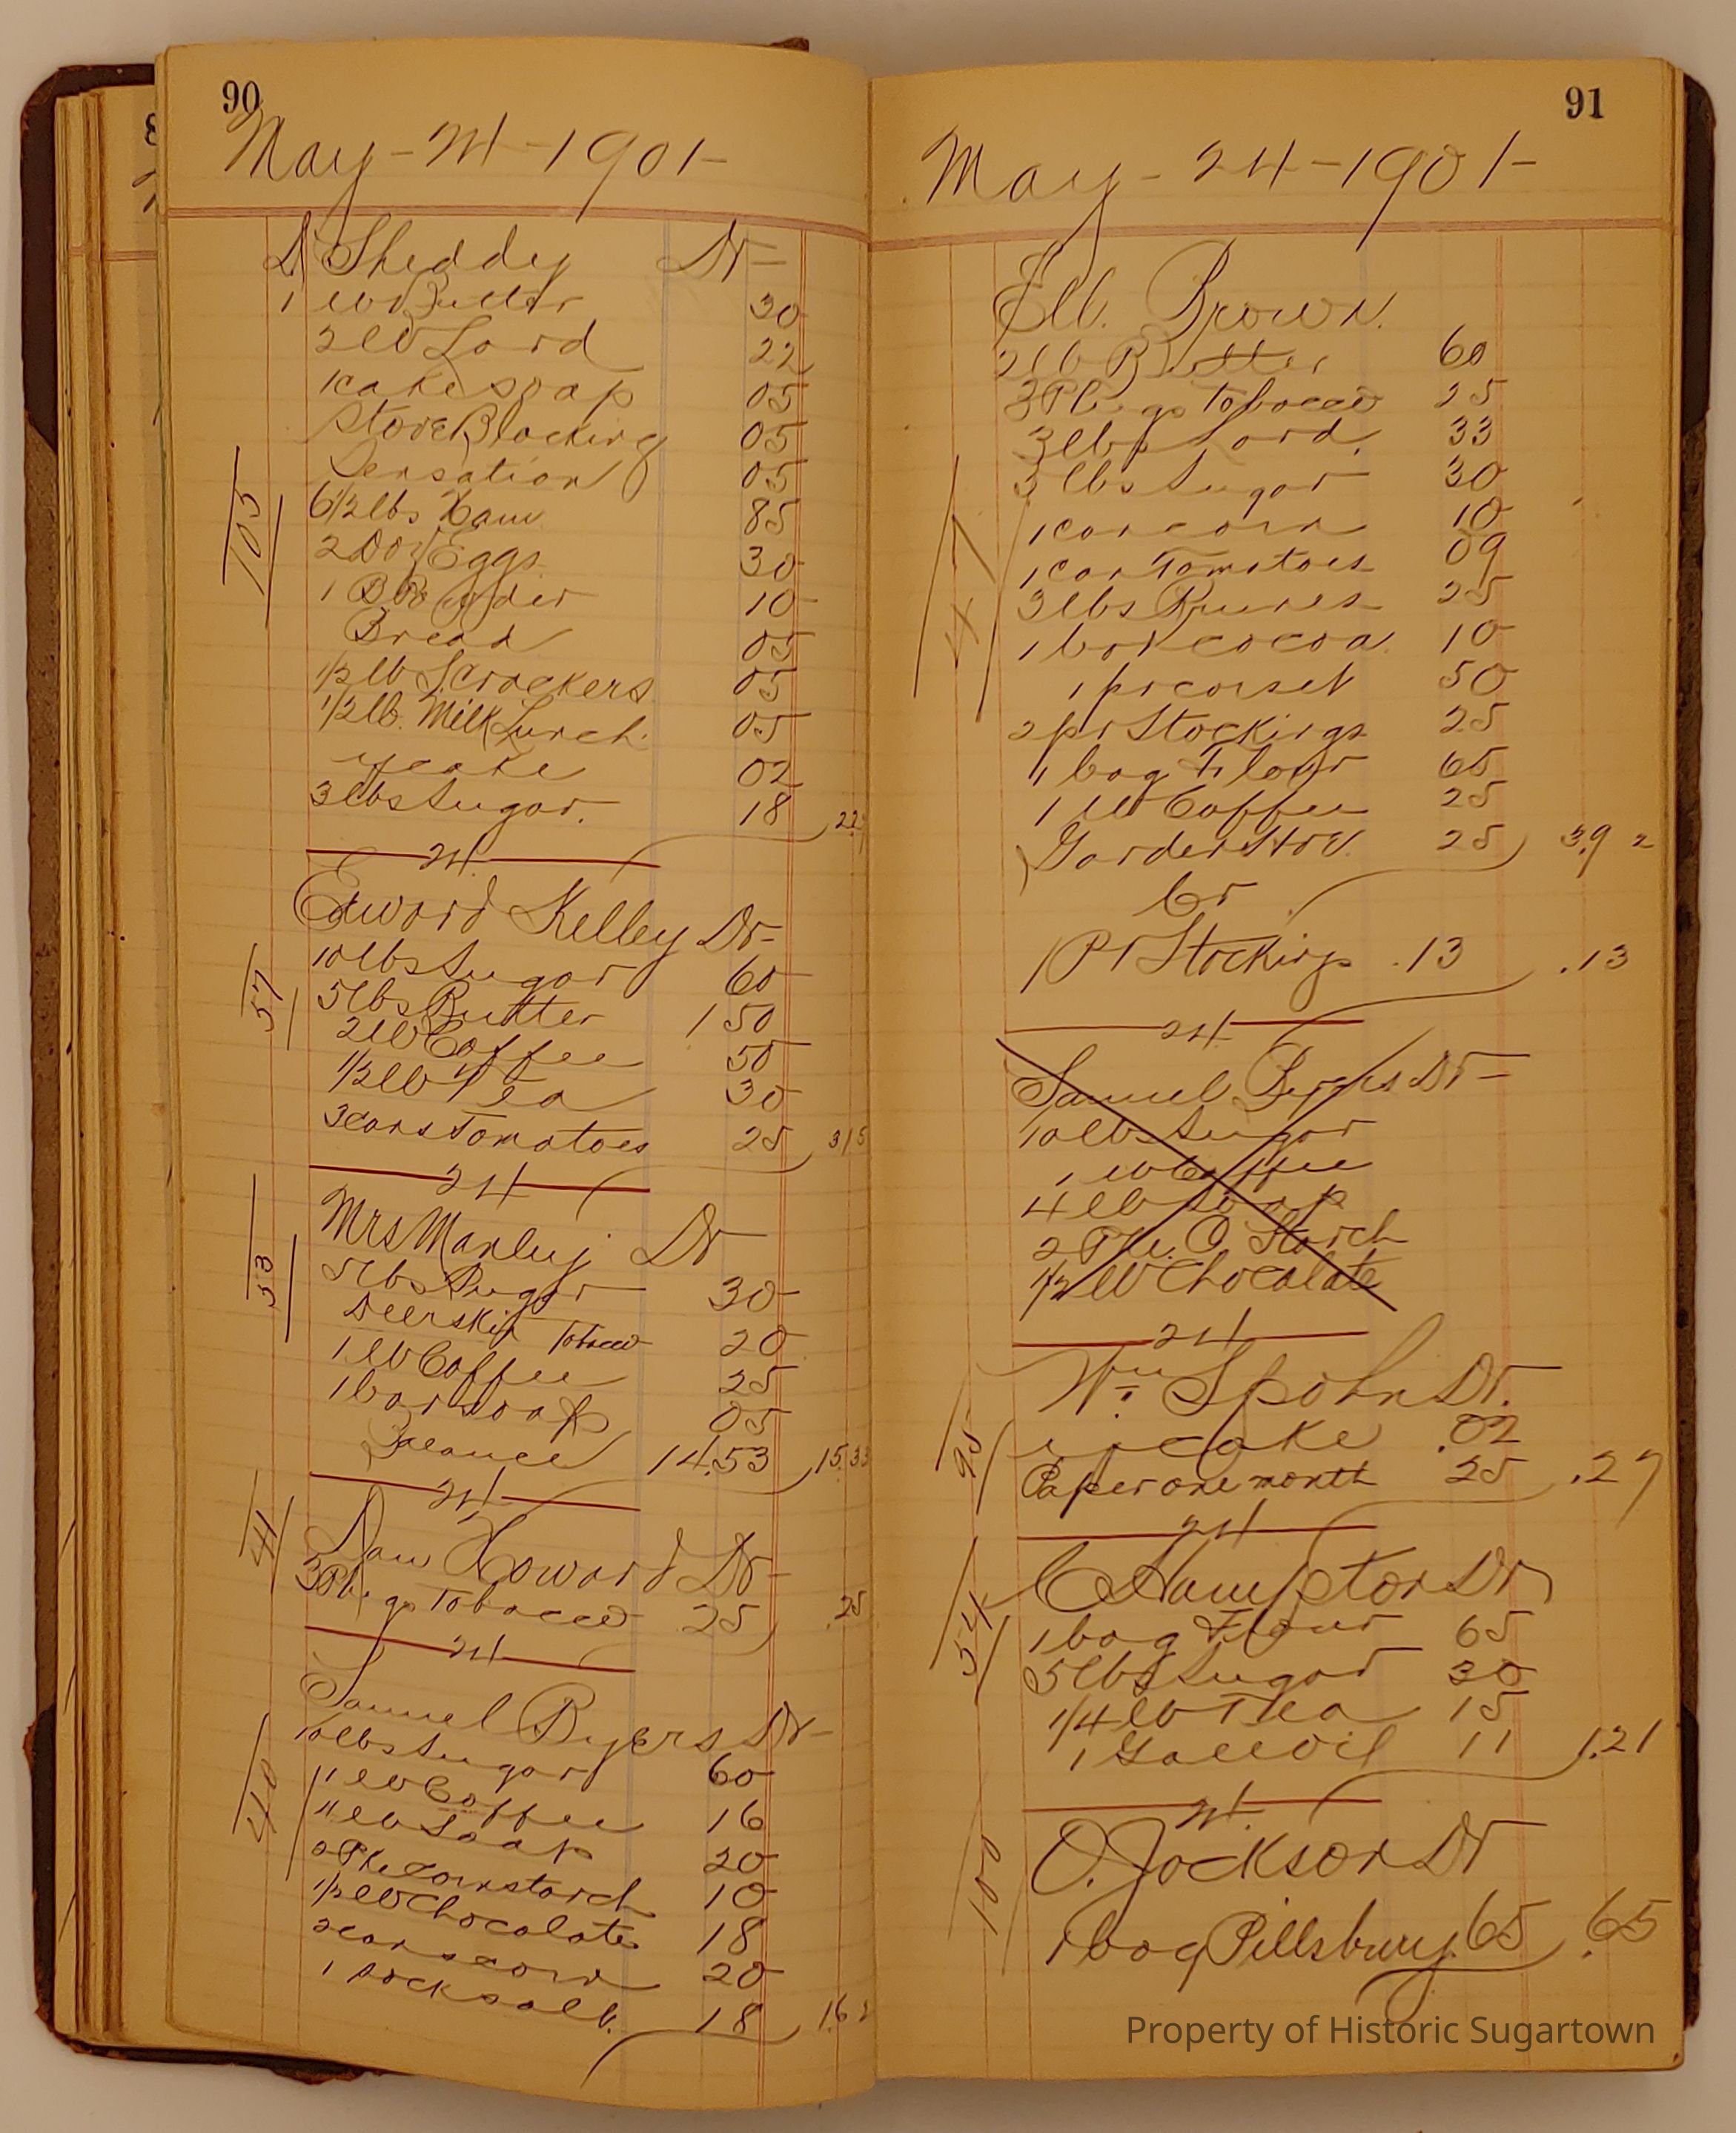 90
May - 24 - 1901 -
D Sheddy Dr -
1 lb Butter 30
2 lb Lard 22
1 cake soap 05
Stove Blacking 05
Sensation 05
6 1/2 lbs Ham 85
2 Doz Eggs 30
1 B Powder 10
Bread 05
1/2 lb S. Crackers 05
1/2 lb. Milk Lunch 05
y cake 02
3 lbs Sugar. 18 22
105
24
Edward Kelley Dr -
10 lbs Sugar 60
5 lbs Butter 1 50
2 lb Coffee 50
1/2 lb Tea 30
3 cans Tomatoes 25 315
57
24
Mrs Manley Dr
5 lbs Sugar 30
Deerskin Tobacco 20
1 lb Coffee 25
1 bar soap 05
Balance 14.53 15.33
53
24
Saw Howard Dr -
3 Plugs Tobacco 25 .25
41
24
Samuel Byers Dr -
10 lbs Sugar 60
1 lb Coffee 16
4 lb Soap 20
2 Pks Cornstarch 10
1/2 lb Chocolate 18
2 cans corn 20
1 sack salt. 18 1.6
40
91
May - 24 - 1901 -
Elb. Brown.
2 lb Butter 60
3 Plugs Tobacco 25
3 lbs Lard. 33
5 lbs Sugar 30
1 can corn 10
1 can Tomatoes 09
3 lbs Prunes 25
1 box cocoa 10
1 pr corset 50
2 pr Stockings 25
1 bag Flour 65
1 lb Coffee 25
Garden Hoe. 25 3.92
47
Cr
1 Pr Stockings .13 .13
24
Samuel Byers Dr -
10 lbs Sugar
1 lb Coffee
4 lb Soap
2 Pk. C Starch
1/2 lb Chocolate
24
Wm Spohn Dr.
y cake .02
Paper one month 25 .27
95
24
C Hampton Dr
1 bag Flour 65
5 lbs Sugar 30
1/4 lb Tea 15
1 Gall oil 11 1.21
54
24
O. Jackson Dr
1 bag Pillsbury .65 .65
100
Property of Historic Sugartown